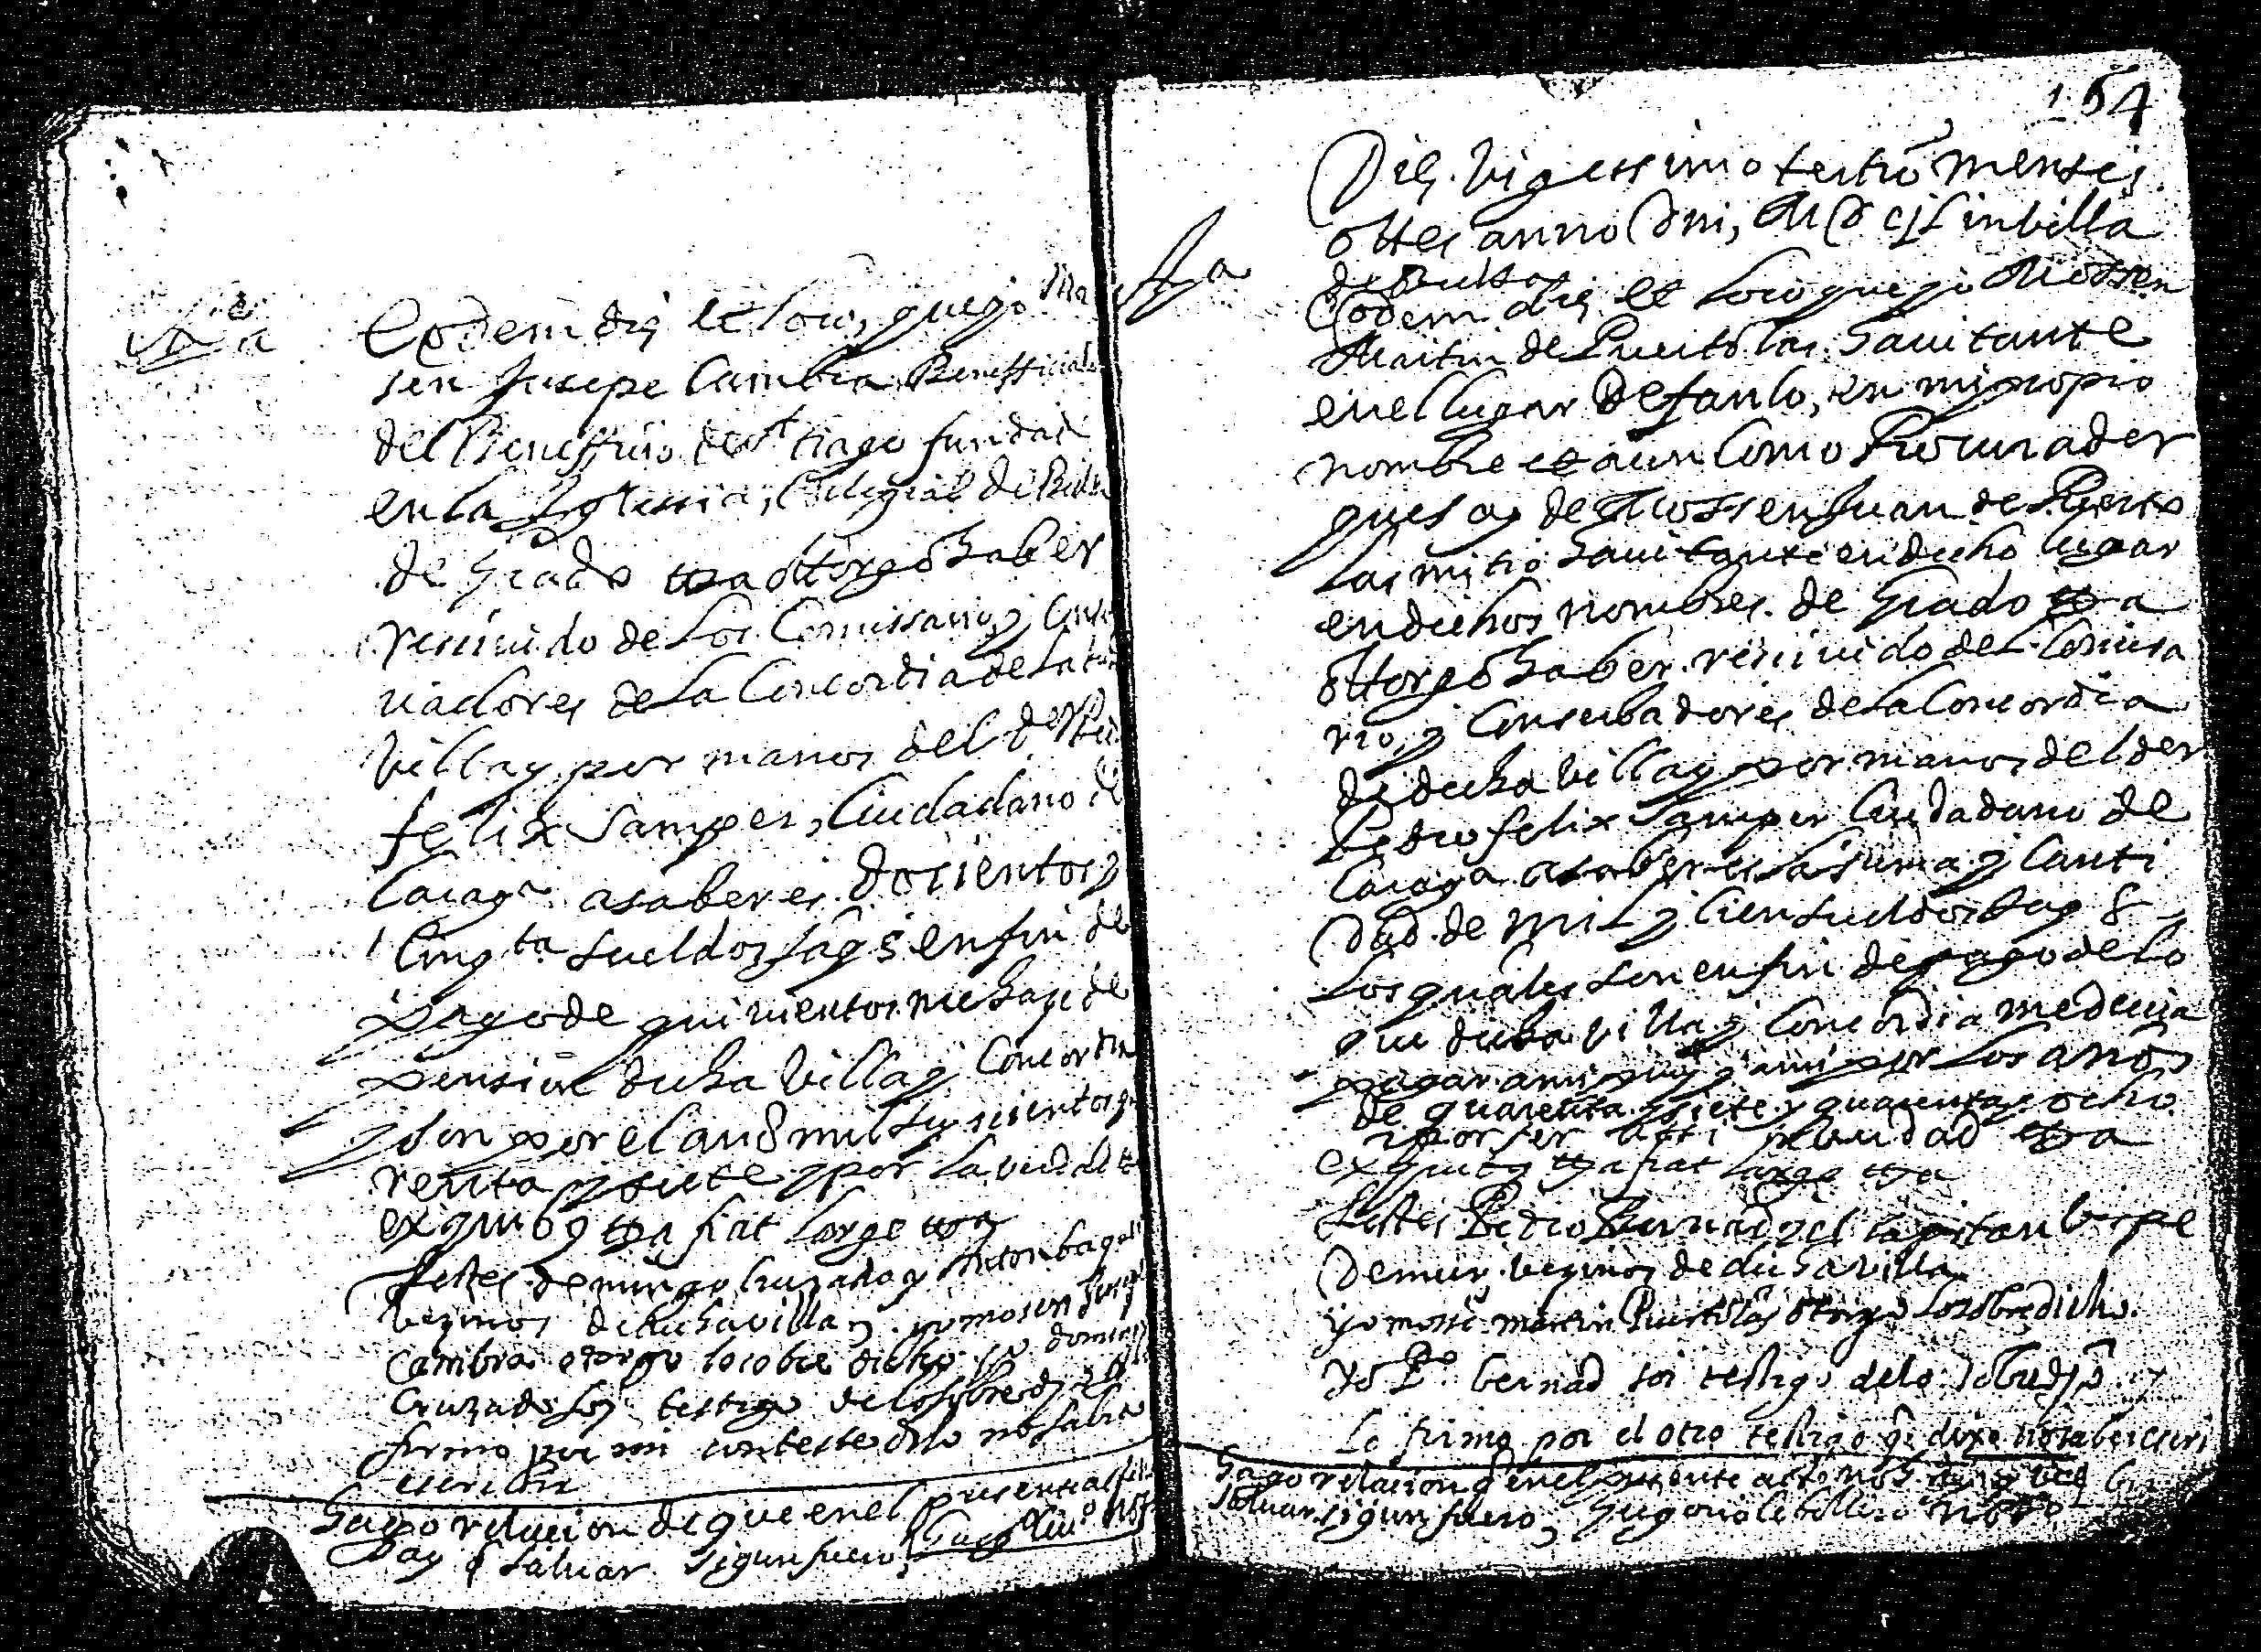 Eodem die et loco, que yo
sen Jusepe Cambra Benefficiado
del Beneffiçio de Stiago fundad
en la Iglessia, Colegial de
de Grado etca ottorgo haber
reciuido de los Comissarios y Conser
uadores de la Concordia de la
villa y por manos del dor
felix Samper, Ciudadano de
Caragª a saber es docientos y
Cinqta sueldos Jaqs en fin de
pago de quinientos me haze de
pension dicha villa y Concordia
y son por el año mil seycientos qua
renta y siete y por la verdad
ex quibus etca fiat large etca
testes domingo Cruzado y Anton
vezinos de dicha villa yo mosen
Cambra otorgo lo sobre dicho yo doming
Cruzado soy testigo de lo sobredi
firmo por mi conteste dixo no saber
escribir
Hago relacion de que en el presente
ay q saluar segun fuero
164
Die vigessimo tertio mensis
ottes anno Dni, M D C jL in villa
Eodem die et loco que yo Mossen
Martin de Puertolas hauitante
en el lugar de fanlo, en mi propio
nombre et aun Como Procurador
ques soy de Mossen Juan de Puerto
las mi tio hauitante en dicho lugar
en dichos nombres de Grado etca
ottorgo haber reciuido del Comisa
rio, y Conserbadores de la Concordia
de dicha villa y por manos del dor
Pedro felix Samper Ciudadano de
Caragª a saber es la suma y Canti
dad de mil y Cien sueldos Jaqs
los quales son en fin de pago de lo
que dicha villa y Concordia me deuia
pagar a mi pnl y a mi por los años
de quarenta y siete y quarenta y ocho
y por ser assi verdad etca
ex quibus etca fiat large etca
testes Pedro Bernad y el Capitan
Demur vezinos de dicha villa
yo mosse martin Puertolas otorgo lo sobredicho
yo Po bernad soi testigo de lo sobredho y
lo firmo por el otro testigo q dixo no saber escri
Hago relacion q en el presente acto no
saluar segun fuero,